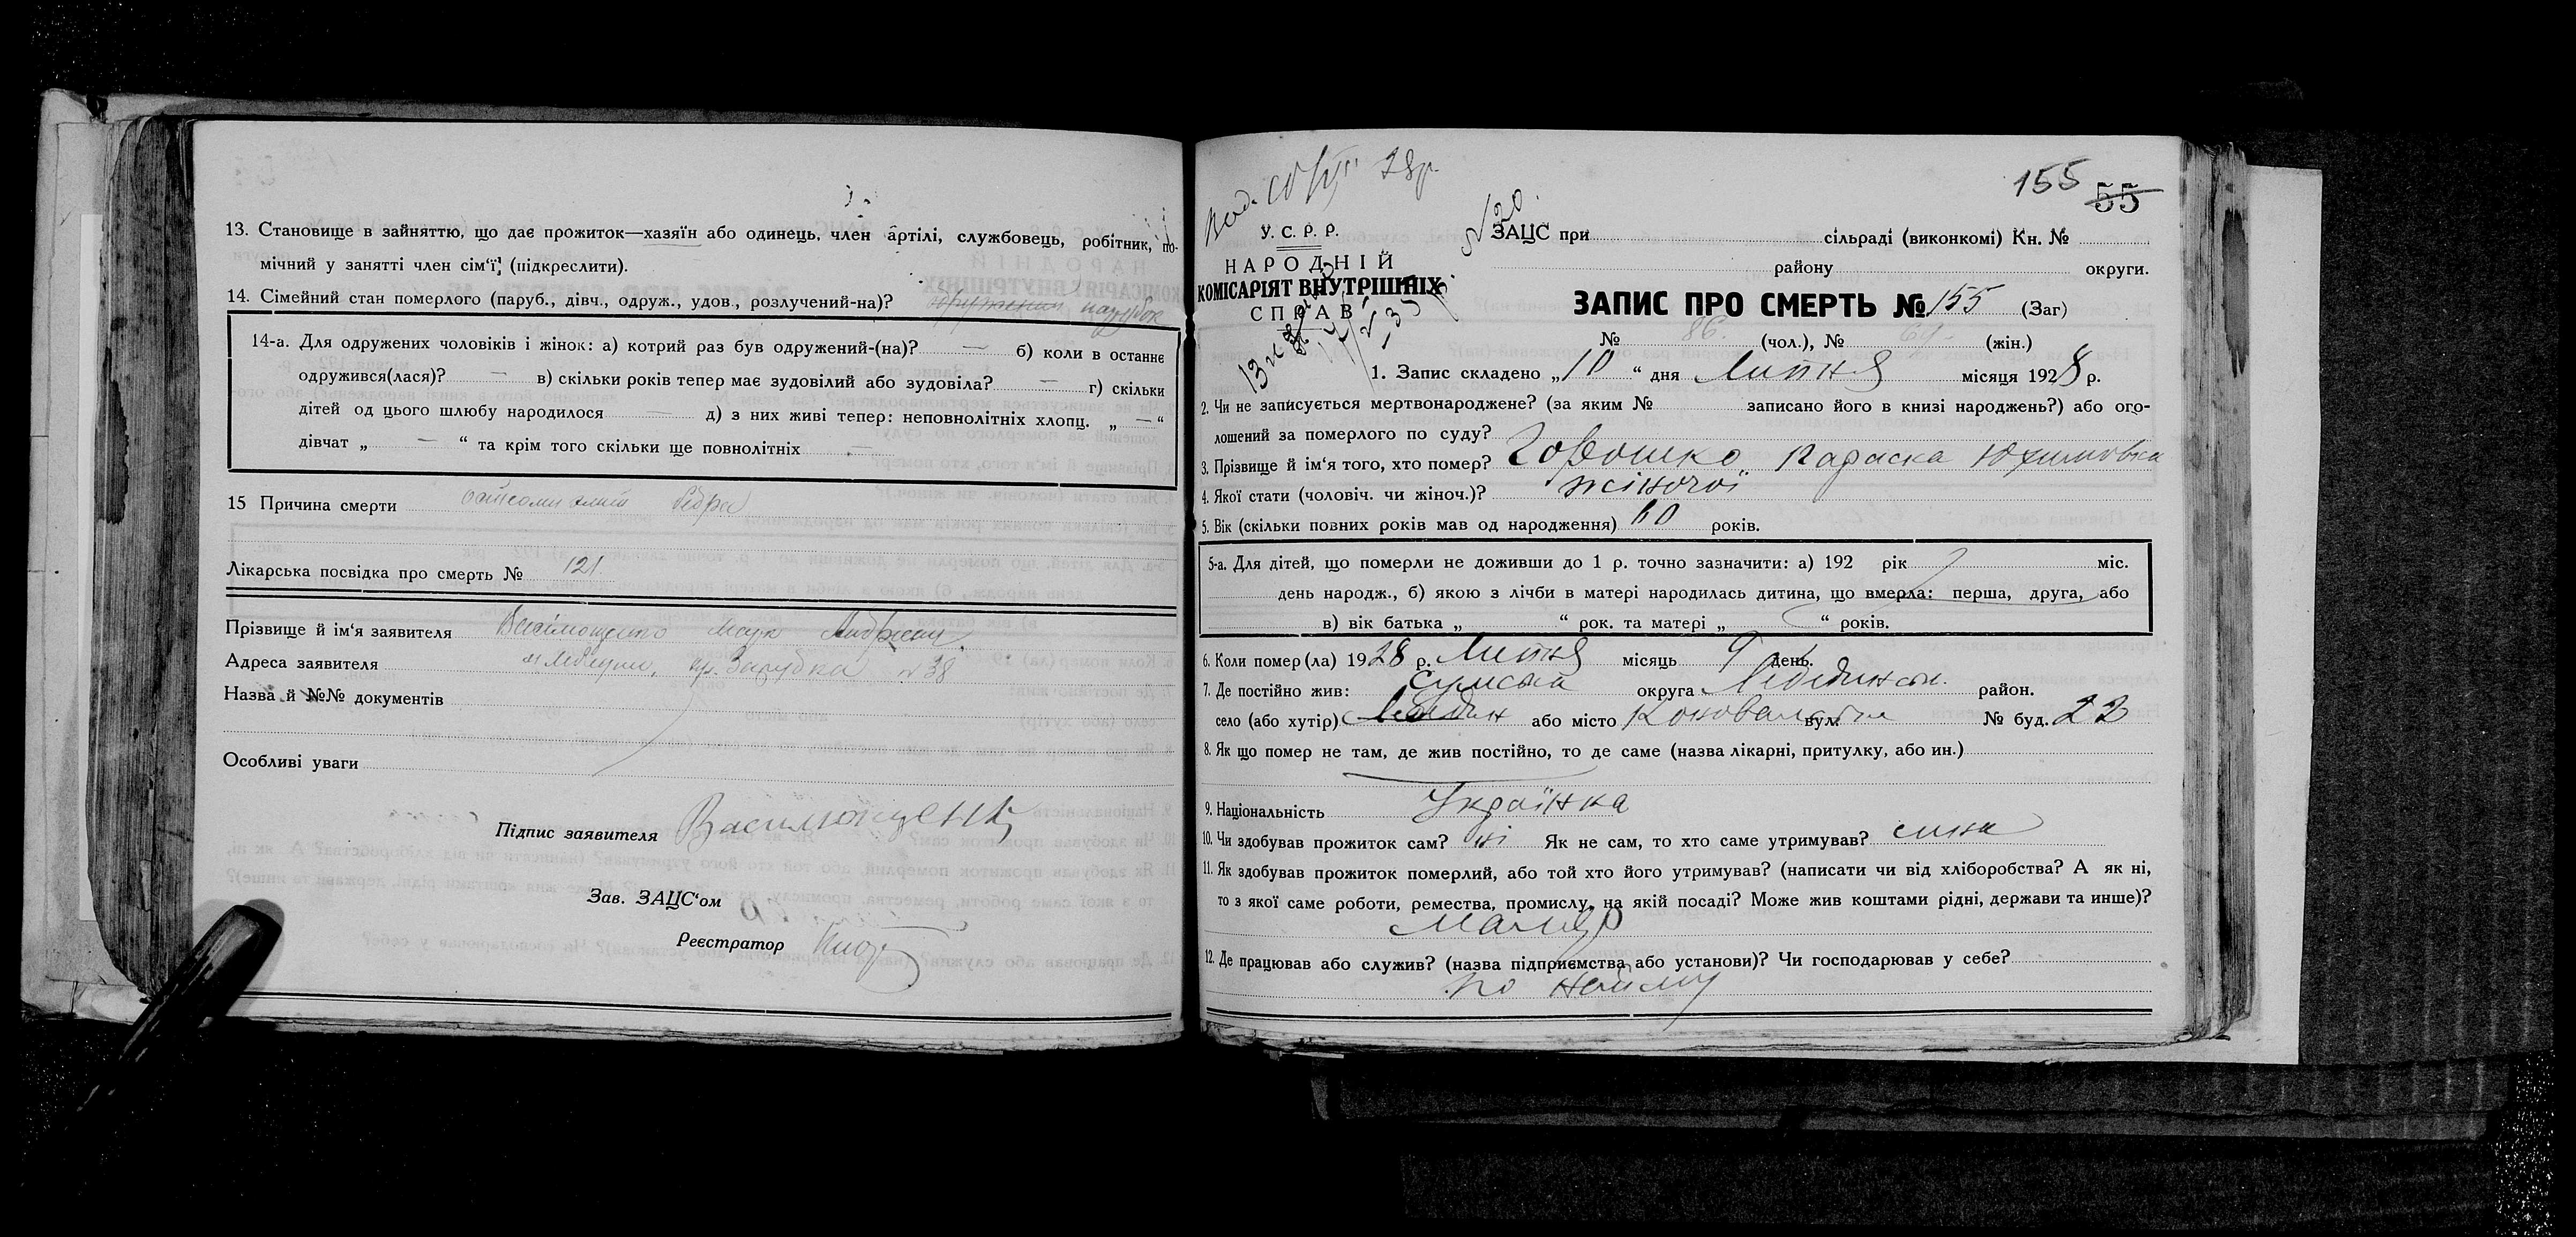 13. Становище в зайняттю, що дає прожиток—хазяїн або одинець, член артілі, службовець, робітник, по-
мічний у занятті член сім'ї, (підкреслити).
14. Сімейний стан померлого (паруб., дівч., одруж., удов., розлучений-на)? парубок
14-а. Для одружених чоловіків і жінок: а) котрий раз був одружений-(на)? — б) коли в останнє
одружився(лася)? — в) скільки років тепер має зудовілий або зудовіла? — г) скільки
дітей од цього шлюбу народилося — д) з них живі тепер: неповнолітніх хлопц. „ — “
дівчат „ — “ та крім того скільки ще повнолітніх —
15 Причина смерти
Лікарська посвідка про смерть № 121
Прізвище й ім'я заявителя
Адреса заявителя м. Лебедин, № 38
Назва й №№ документів
Особливі уваги
Підпис заявителя
Зав. ЗАЦС'ом
Реєстратор
155 55
У. С. Р. Р.
НАРОДНІЙ
КОМІСАРІЯТ ВНУТРІШНІХ
СПРАВ
ЗАЦС при сільраді (виконкомі) Кн. №
району округи.
ЗАПИС ПРО СМЕРТЬ № 155 (Заг)
№ 86 (чол.), № (жін.)
1. Запис складено „10“ дня Липня місяця 1928 р.
2. Чи не записується мертвонароджене? (за яким № записано його в книзі народжень?) або ого-
лошений за померлого по суду?
3. Прізвище й ім'я того, хто помер? Горошко Параска Юхимовна
4. Якої стати (чоловіч. чи жіноч.)? жіночої
5. Вік (скільки повних років мав од народження) 60 років.
5-а. Для дітей, що померли не доживши до 1 р. точно зазначити: а) 192 рік міс.
день народж., б) якою з лічби в матері народилась дитина, що вмерла: перша, друга, або
в) вік батька „ “ рок. та матері „ “ років.
6. Коли помер(ла) 1928 р. Липня місяць 9 день.
7. Де постійно жив: Сумська округа Лебединськ. район.
село (або хутір) Лебедин або місто вул. № буд. 22
8. Як що помер не там, де жив постійно, то де саме (назва лікарні, притулку, або ин.)
9. Національність Українка
10. Чи здобував прожиток сам? ні Як не сам, то хто саме утримував? сина
11. Як здобував прожиток померлий, або той хто його утримував? (написати чи від хліборобства? А як ні,
то з якої саме роботи, ремества, промислу, на якій посаді? Може жив коштами рідні, держави та инше)?
Маляр
12. Де працював або служив? (назва підприємства або установи)? Чи господарював у себе?
по найму